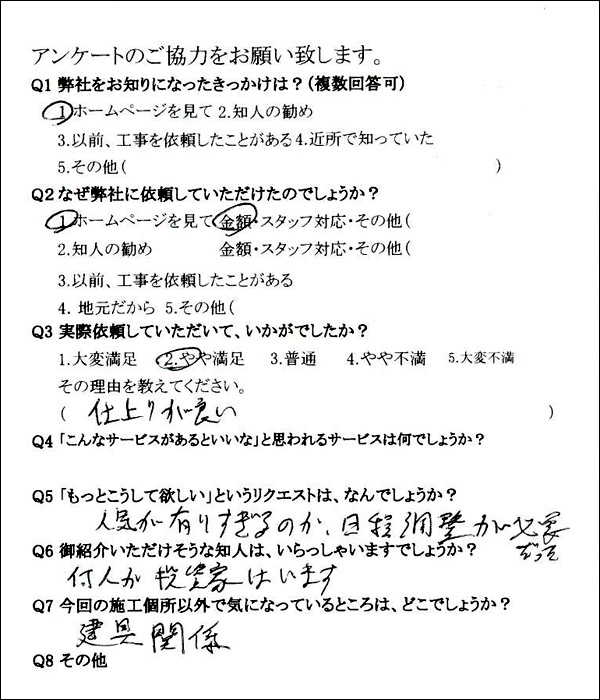 アンケートのご協力をお願い致します。
Q1 弊社をお知りになったきっかけは？(複数回答可)
1ホームページを見て 2.知人の勧め
3.以前、工事を依頼したことがある 4.近所で知っていた
5.その他( )
Q2 なぜ弊社に依頼していただけたのでしょうか？
1ホームページを見て 金額・スタッフ対応・その他(
2.知人の勧め 金額・スタッフ対応・その他(
3.以前、工事を依頼したことがある
4. 地元だから 5.その他(
Q3 実際依頼していただいて、いかがでしたか？
1.大変満足 2.やや満足 3.普通 4.やや不満 5.大変不満
その理由を教えてください。
( 仕上りが良い )
Q4 「こんなサービスがあるといいな」と思われるサービスは何でしょうか？
Q5 「もっとこうして欲しい」というリクエストは、なんでしょうか？
人気が有りすぎるのか、日程調整が必要
だった
Q6 御紹介いただけそうな知人は、いらっしゃいますでしょうか？
何人か投資家はいます
Q7 今回の施工個所以外で気になっているところは、どこでしょうか？
建具関係
Q8 その他